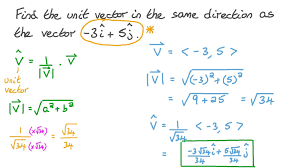 Find the unit vector in the same direction as
the vector -3î + 5ĵ. *
V̂ = 1/|V⃗| · V⃗
unit
vector
|V⃗| = √(a² + b²)
1/√34 (x√34)/(x√34) = √34/34
V⃗ = < -3, 5 >
|V⃗| = √((-3)² + (5)²)
= √(9 + 25) = √34
V̂ = 1/√34 < -3, 5 >
= -3√34/34 î + 5√34/34 ĵ